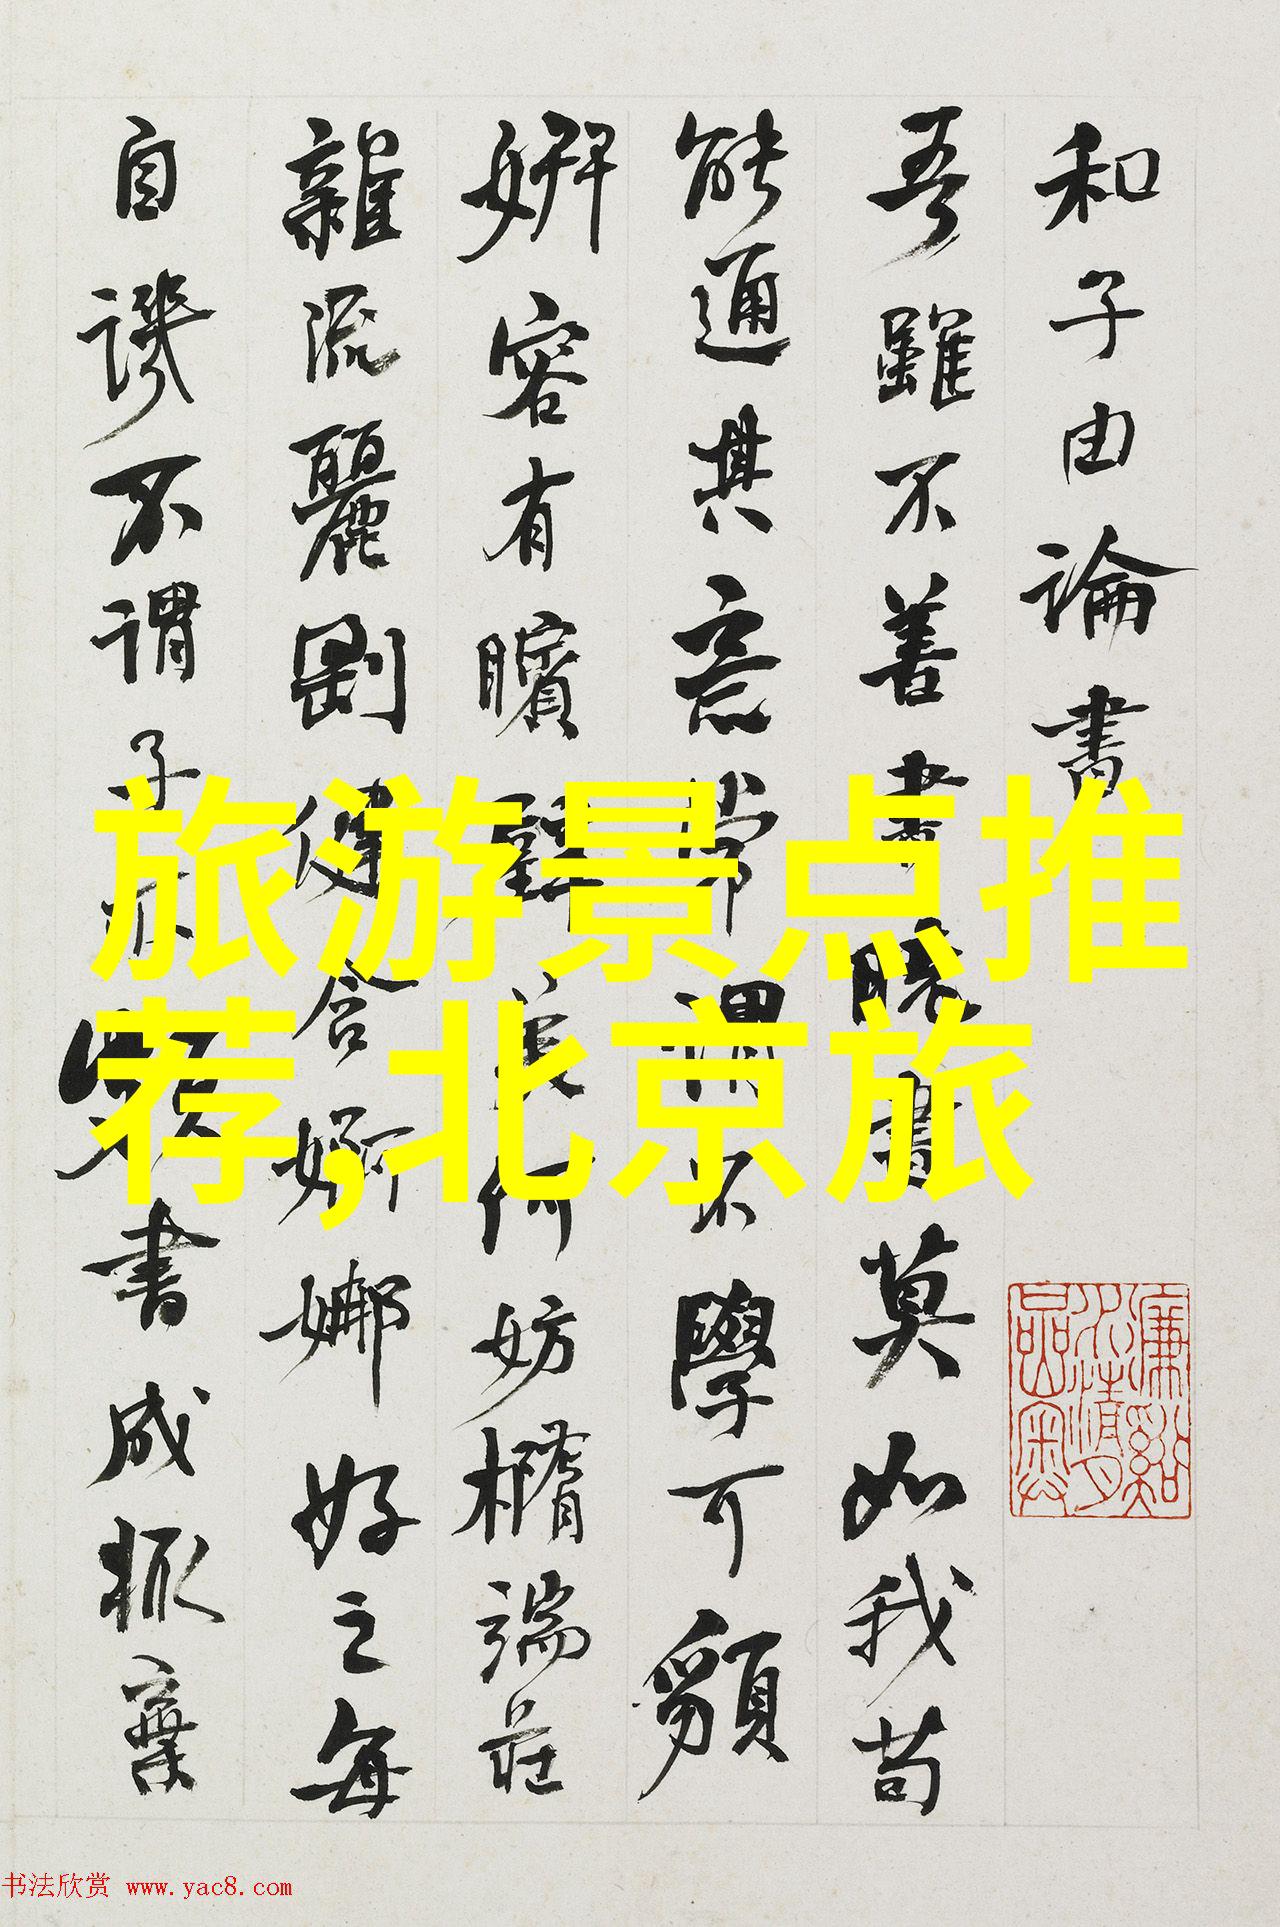 和子由論書
吾雖不善書曉書莫如我苟
能通其意常謂不學可䫉
妍容有矉璧美何妨橢端莊
雜流麗剛健含婀娜好之每
自譏不謂子亦頗書成輒棄
旅游景点推
荐,北京旅
书法欣赏 www.yac8.com